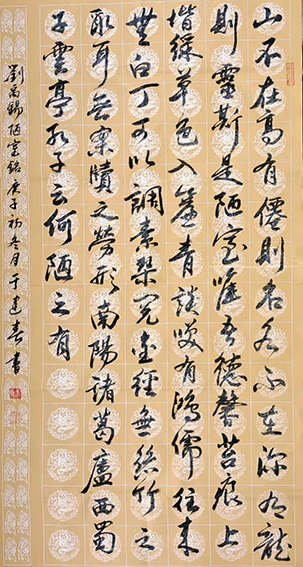 山不在高有僊則名水不在深有龍
則靈斯是陋室唯吾德馨苔痕上
堦緑草色入簾青談咲有鴻儒往来
無白丁可以調素琴閱金經無絲竹之
亂耳無案牘之勞形南陽諸葛廬西蜀
子雲亭孔子云何陋之有
劉禹錫陋室銘庚子初冬月于建春書